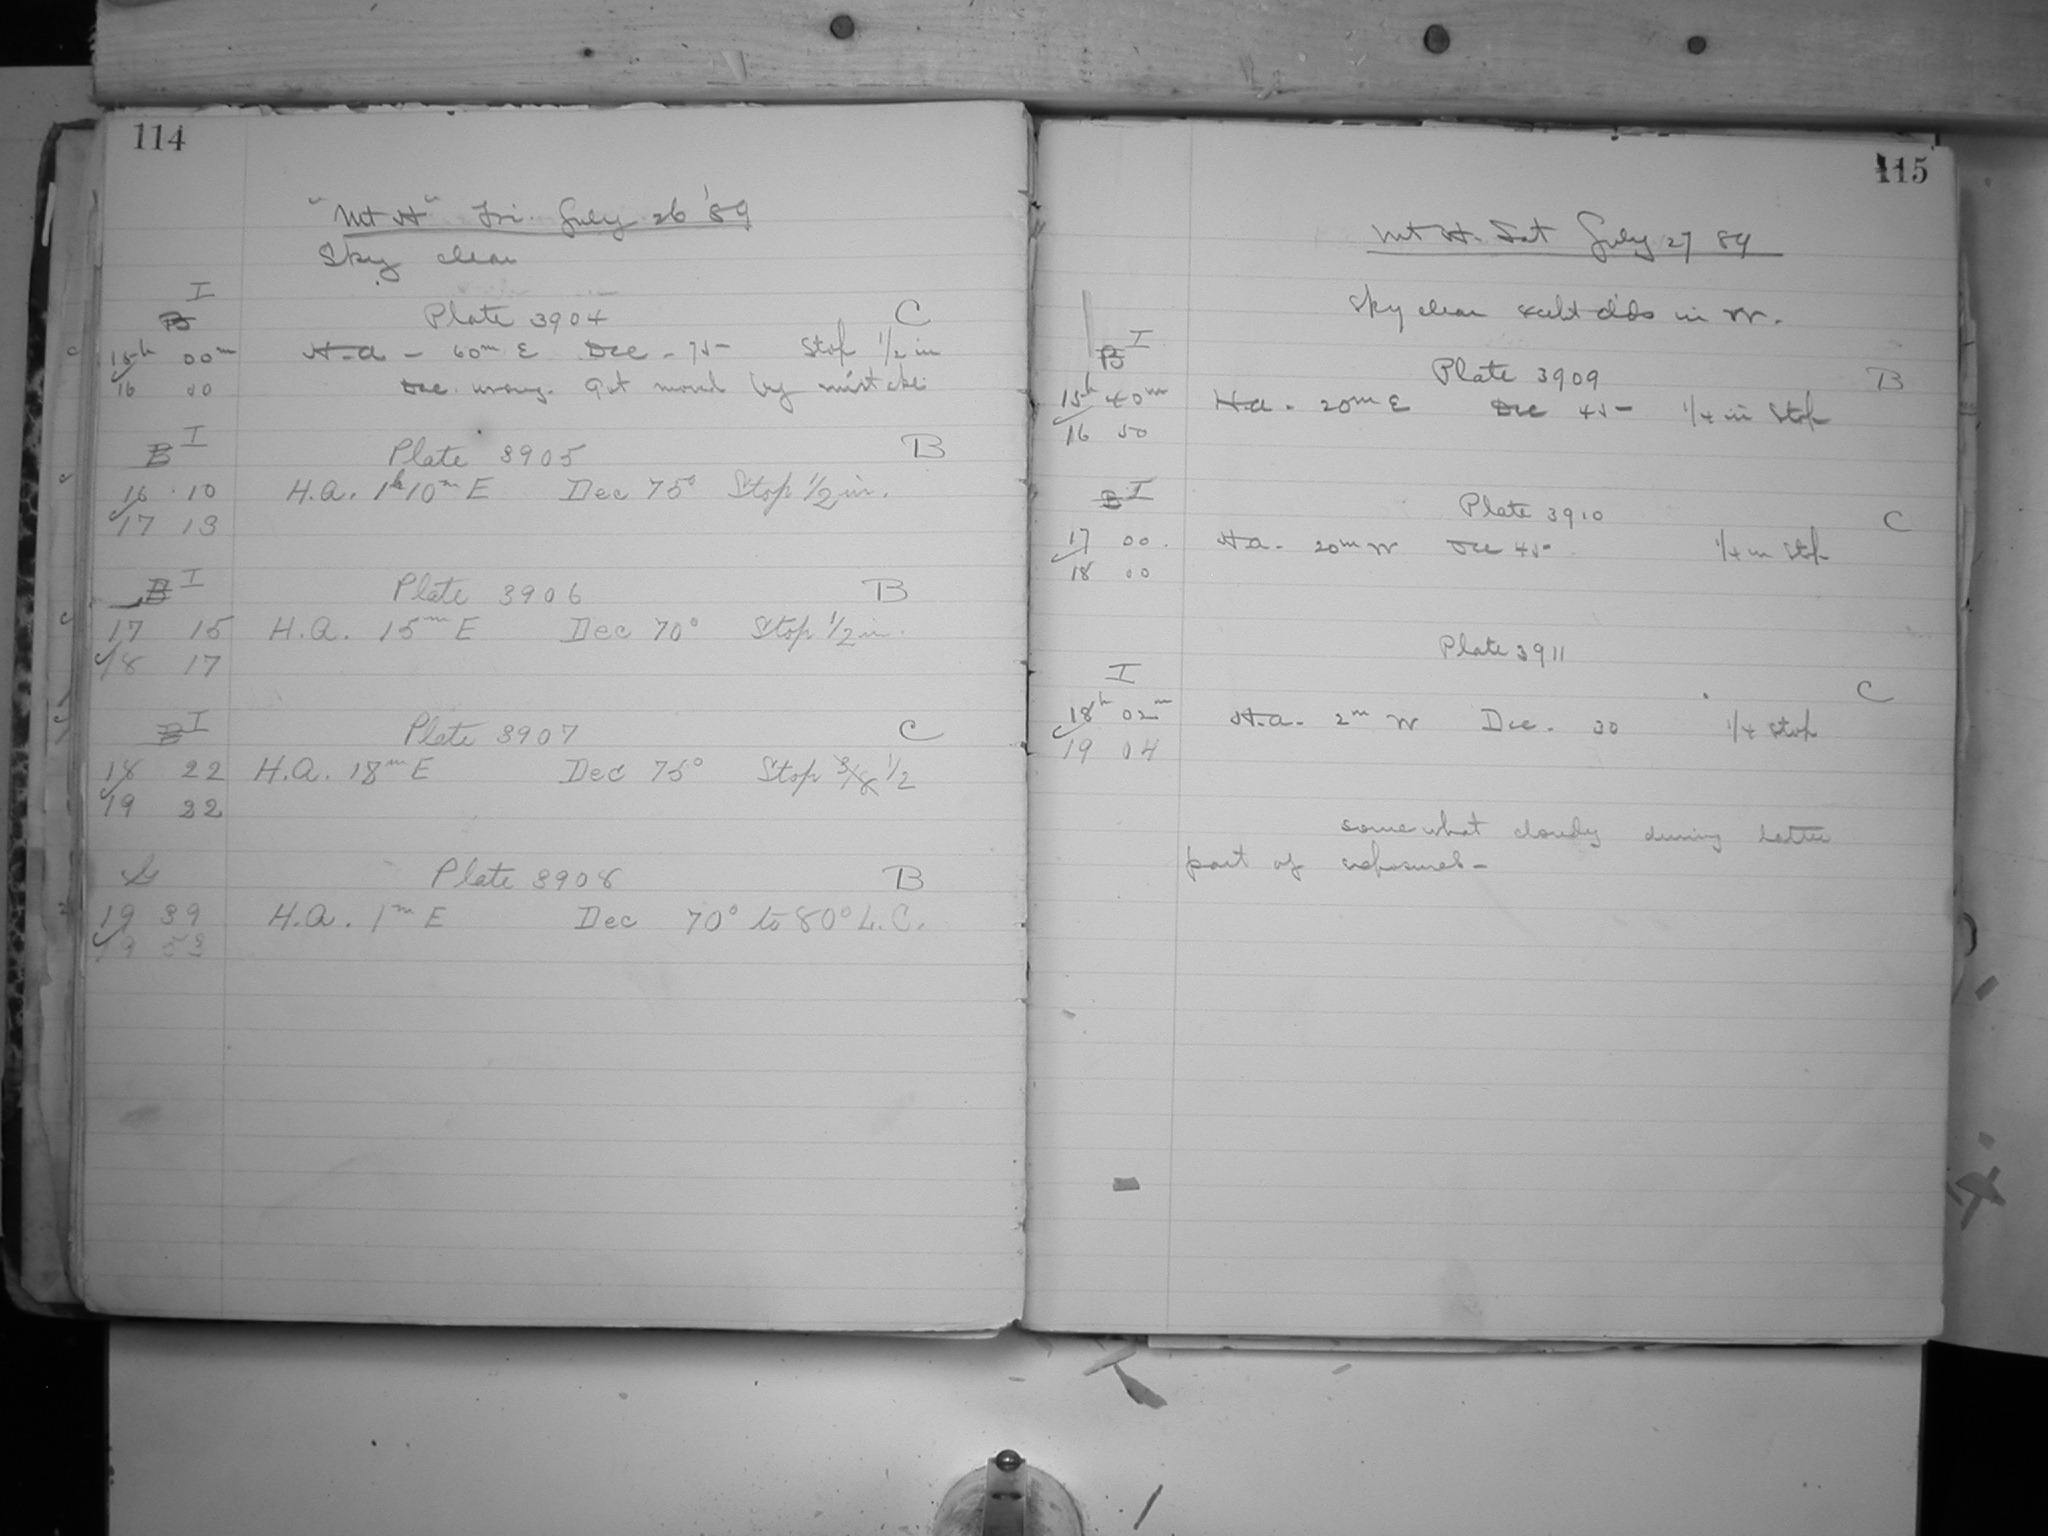 114
"Mt H" Fri. July 26 '89
Sky clear
I
B
Plate 3904 C
15h 00m H.A - 60m E Dec - 75 Stop 1/2 in
16 00 Dec. wrong. Got moved by mistake
B I Plate 3905 B
16 10 H.A. 1h 10m E Dec 75° Stop 1/2 in.
17 13
B I Plate 3906 B
17 15 H.A. 15m E Dec 70° Stop 1/2 in.
18 17
B I Plate 3907 C
18 22 H.A. 18m E Dec 75° Stop 3/8 1/2
19 22
Plate 3908 B
19 39 H.A. 1m E Dec 70° to 80° L.C.
19 53
115
Mt H. Sat July 27 89
Sky clear except clds in W.
B I
Plate 3909 B
15h 40m H.A. 20m E Dec 45 1/4 in Stop
16 50
B I Plate 3910 C
17 00. H.A. 20m W Dec 45 1/4 in Stop
18 00
Plate 3911
I C
18h 02m H.A. 2m W Dec. 30 1/4 Stop
19 04
somewhat cloudy during latter
part of exposures -